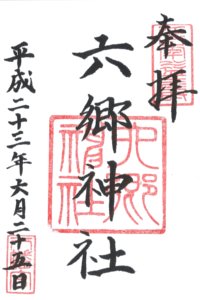 奉拝
六郷神社
六郷
神社
平成二十三年六月二十五日